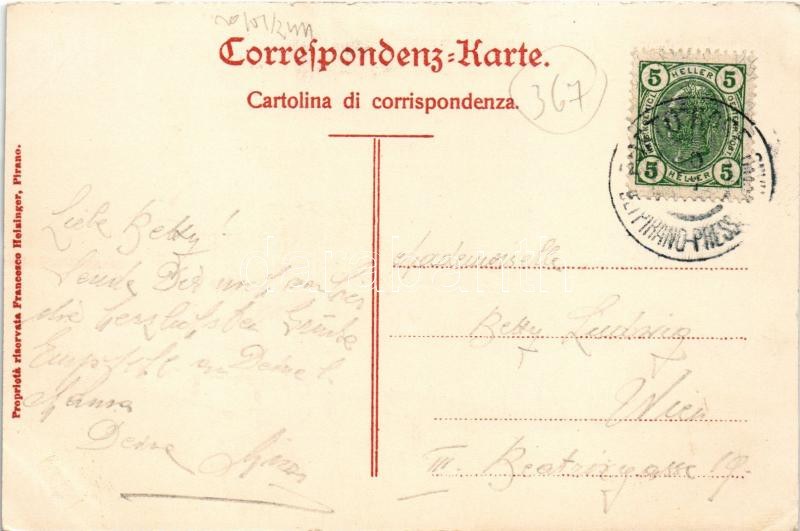 Correspondenz-Karte.
Cartolina di corrispondenza.
367
5 HELLER 5
5 HELLER 5
PIRANO-PRESSO
Proprietà riservata Francesco Heininger, Pirano.
Liebe Betty!
Sende Dir
die herzlichsten Grüße
Empfehl an Deine l.
Mama
Deine
Mademoiselle
Betty Ludwig
Wien
III. Beatrixgasse 19.